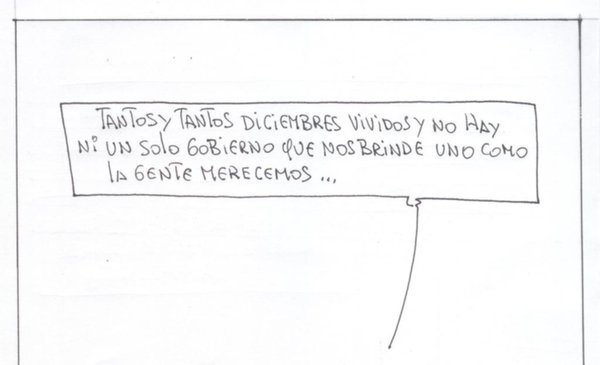 TANTOS Y TANTOS DICIEMBRES VIVIDOS Y NO HAY
NI UN SOLO GOBIERNO QUE NOS BRINDE UNO COMO
LA GENTE MERECEMOS...